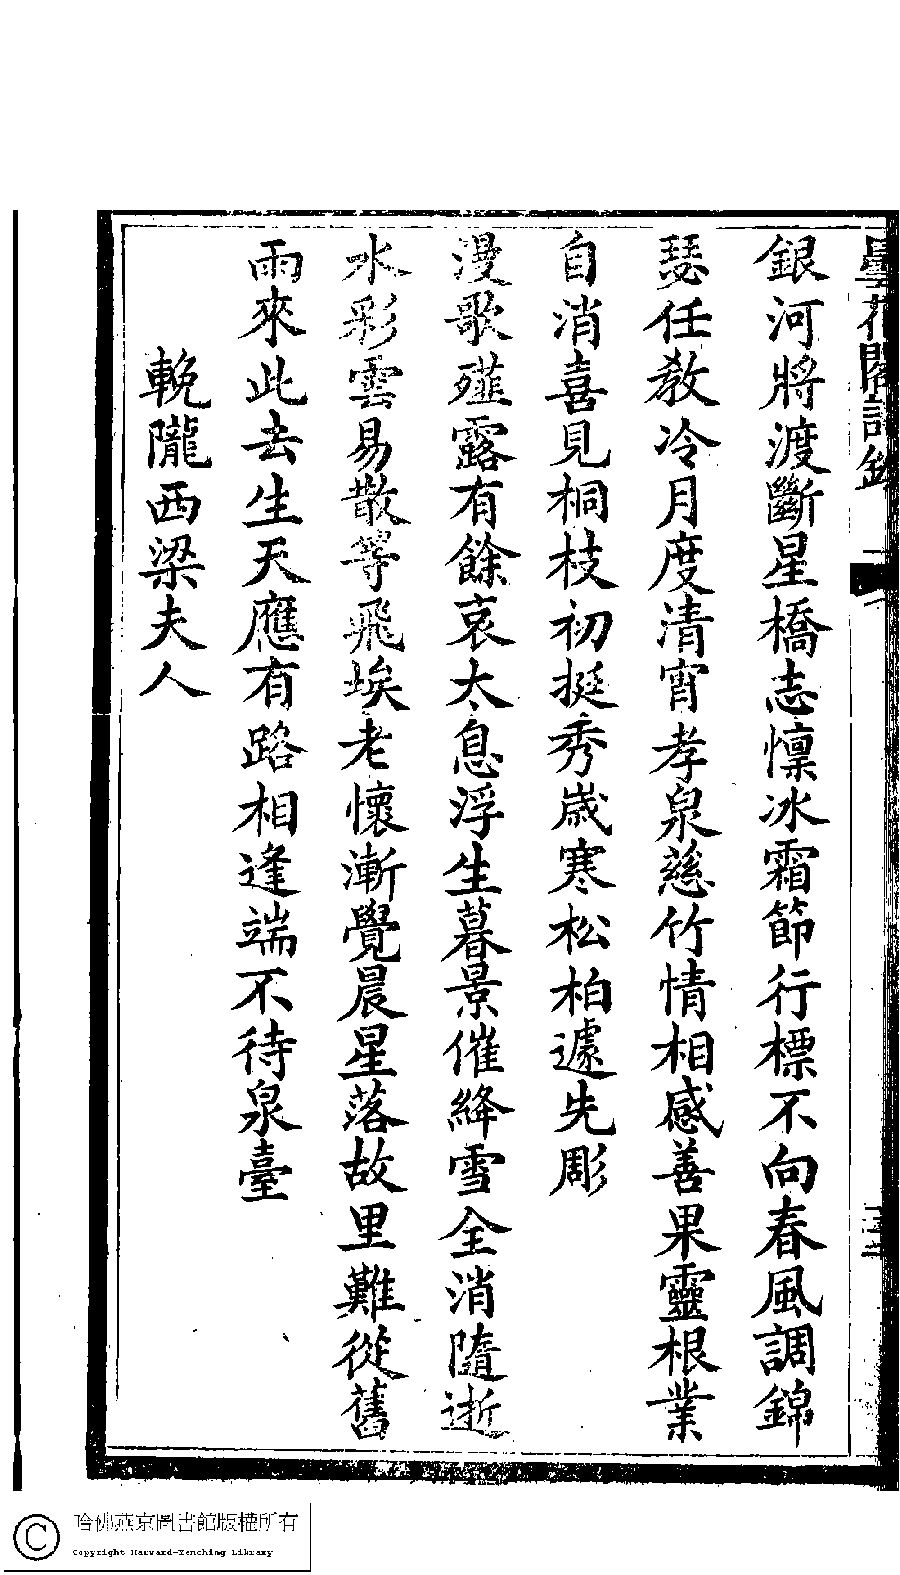 曇花閣詩鈔
銀河將渡斷星橋志懍冰霜節行標不向春風調錦
瑟任教冷月度清宵孝泉慈竹情相感善果靈根業
自消喜見桐枝初挺秀歲寒松柏遽先彫
漫歌薤露有餘哀太息浮生暮景催絳雪全消隨逝
水彩雲易散等飛埃老懷漸覺晨星落故里難從舊
雨來此去生天應有路相逢端不待泉臺
輓隴西梁夫人
哈佛燕京圖書館版權所有
Copyright Harvard-Yenching Library